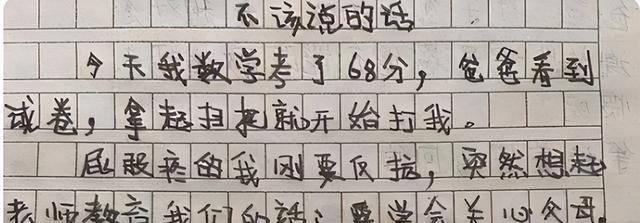 不该说的话
今天我数学考了68分，爸爸看到
试卷，拿起扫把就开始打我。
屁股疼的我刚要反抗，突然想起
老师教育我们的话：要学会关心父母，